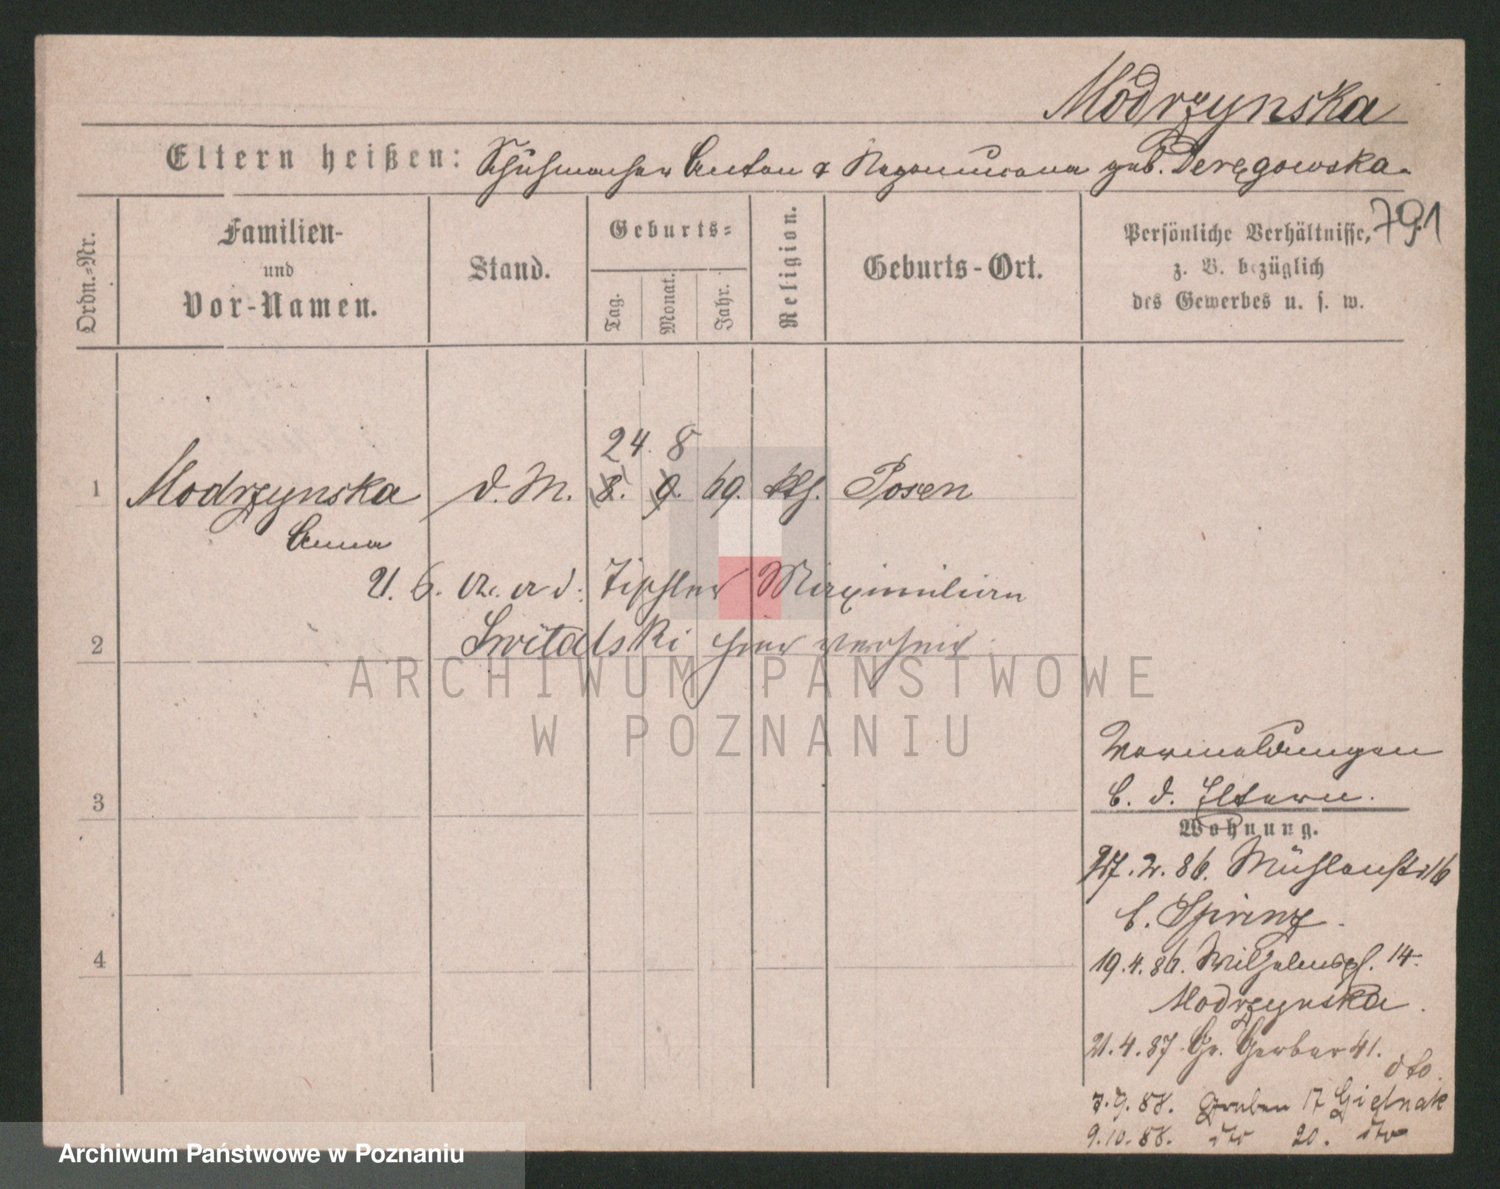 Modrzynska
Eltern heißen: Schuhmacher Anton & geb. Deręgowska.
791
Ordn.-Nr.
Familien-
und
Vor-Namen.
Stand.
Geburts-
Tag.
Monat.
Jahr.
Religion.
Geburts-Ort.
Persönliche Verhältnisse,
z. B. bezüglich
des Gewerbes u. s. w.
24. 8
1 Modrzynska d. M. 8. 9. 69. kth. Posen
Anna
Tischler Maximilian
Switalski hier verheir.
2
ARCHIWUM PAŃSTWOWE
W POZNANIU
Vormeldungen
b. d. Eltern.
3
Wohnung.
27.2.86. Mühlenstr. 16
b.
4
19.4.86. Wilhelmspl. 14.
Modrzynska.
21.4.87. Gr. Gerber 41.
dto.
7.9.88. Graben 17 Gielnak
9.10.88. dto 20. dto
Archiwum Państwowe w Poznaniu